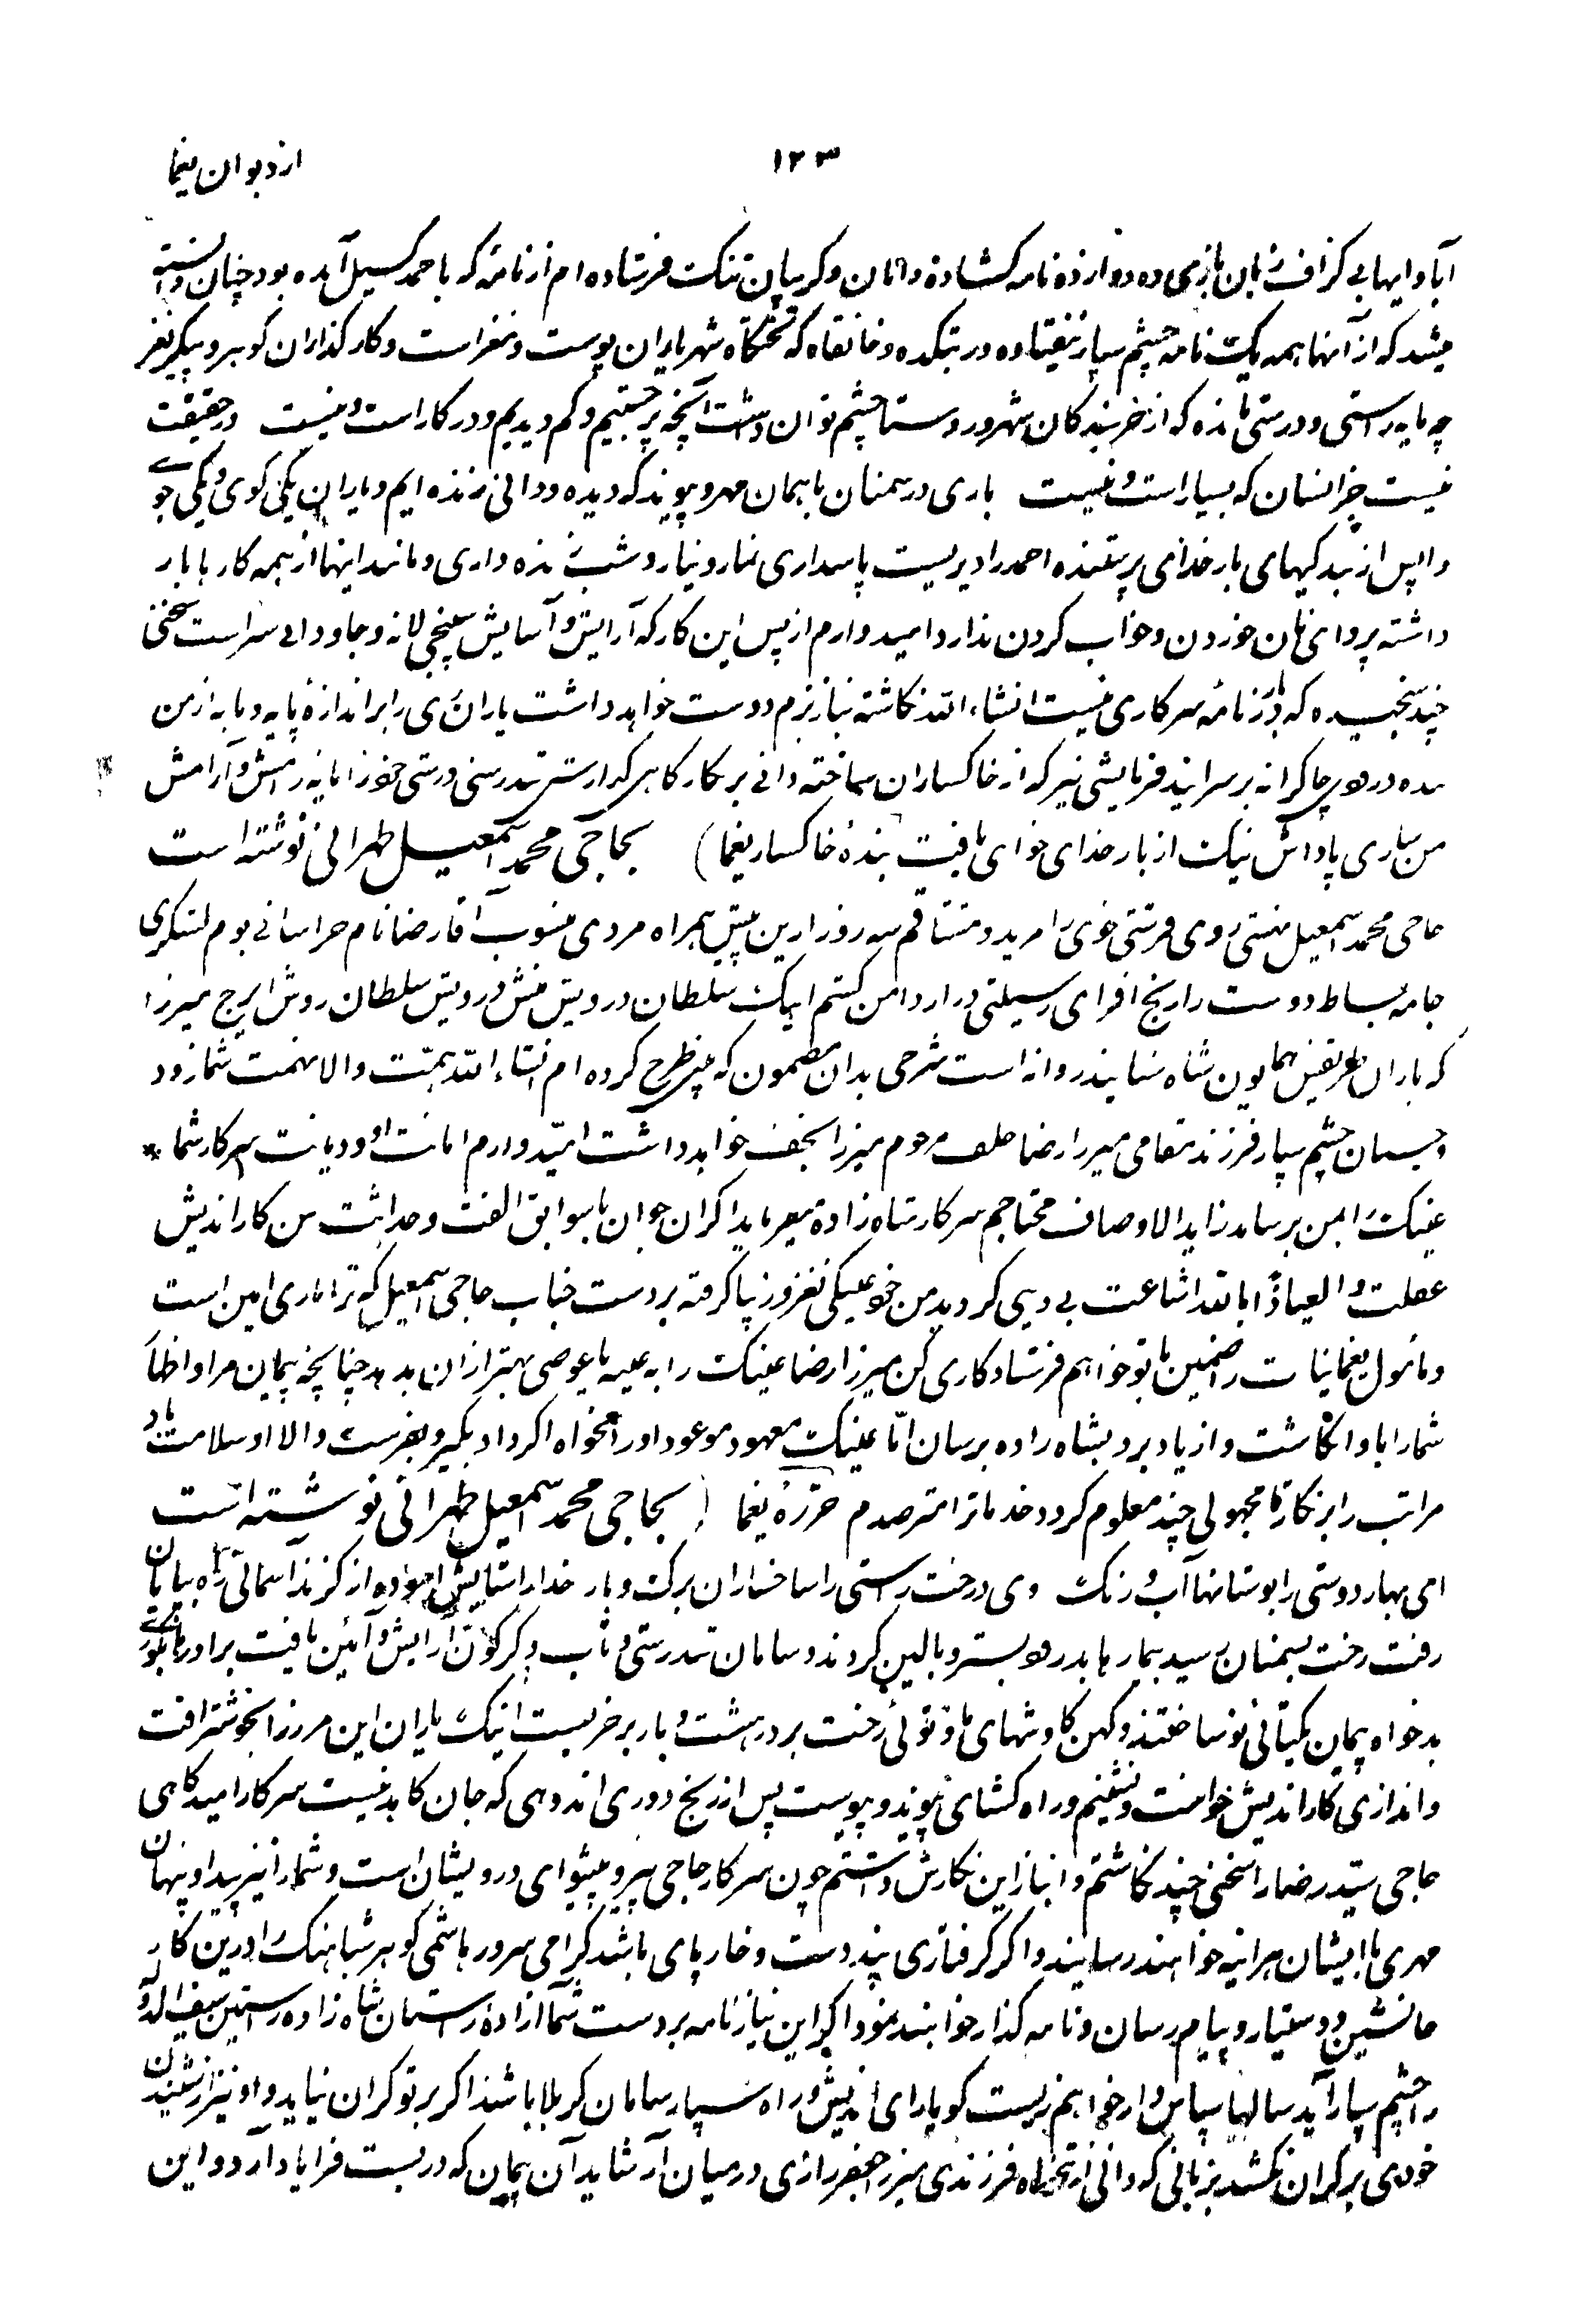 از دیوان یغما
۱۲۳
آباد ایهابی کزاف زبان بازی ده دوازده نامه کشاده دامان و کریبان تنک فرستاده ام از نامهٔ که با احمد کسیل آمده بود چنان دانسته
میشد که از آنها همه یک نامه چشم سپار نیفتاده در بتکده و خانقاه که تختگاه شهریاران پوست و مغز است و کارکذاران کوهر و پیکر نغز
چه مایه راستی و درستی مانده که از خربندکان شهر و روستا چشم توان داشت آنچه پر جستیم و کم دیدیم و در کار است و نیست در حقیقت
نیست جز انسان که بسیار است و نیست باری در سمنان با همان مهر و پیوند که دیده و دانی زنده ایم و یاران یکی کوی و یکی جوی
واپس از بندکیهای بار خدامی پرستنده احمد را دیریست پاسداری نماز و نیاز و شب زنده داری و مانند اینها از همه کار باز
داشته پروای نان خوردن و خواب کردن ندارد امیدوارم از پس این کار که آرایش و آسایش سپنجی لانه و جاودانی سراست سخنی
چند سنجیده که در نامهٔ سرکاری نیست انشاء الله نکاشته نیاز بزم دوست خواهد داشت یاران ری را بر اندازهٔ پایه و مایه از من
بنده درود چاکرانه بر سرایند فرمایشی نیز که از خاکساران ساخته دانی برنکار کاهی کزارش تندرستی و درستی خود را مایه رامش و آرامش
من ساری پاداش نیک از بار خدای خوای یافت بندهٔ خاکسار یغما) بحاجی محمد اسمعیل طهرانی نوشته است
حاجی محمد اسمعیل بهشتی روی فرشتی خوی را مرید و مشتاقم سه روز ازین پیش همراه مردی منسوب آقا رضا نام خراسانی بوم لشکری
جامه بساط دوست را رنج افزای وسیلتی دراز دامن کشتم اینک سلطان درویش منش درویش سلطان روش ایرج میرزا
که باران طریقش همایون شاه ستایند روانه است شرحی بدان مضمون که پیش طرح کرده ام انشاء الله بهمّت والا نهمت شما زود
و بسمان چشم سپار فرزند مقامی میرزا رضا خلف مرحوم میرزا نجف خواهد داشت امیّدوارم امانت او و دیانت سرکار شما *
عینک را بمن برساند زاید الاوصاف محتاجم سرکار شاه زاده میفرماید اکر آن جوان با سوابق الفت و حداثت سن کاراندیش
غفلت و العیاذاً بالله اشاعت بی دینی کردید من خود عینکی نغز و زیبا کرفته بر دست جناب حاجی اسمعیل که ترا یاری امین است
و مأمول یغمائیات را ضمین با تو خواهم فرستاد کاری کن میرزا رضا عینک را به عینه یا عوضی بهتر از ان بدهد چنانچه پیمان مرا و اظهار
شما را باد انکاشت و از یاد برد بشاه زاده برسان امّا عینک معهود موعود او را بخواه اکر داد بکیر و بفرست والا او سلامت باد
مراتب را برنکار تا مجهولی چند معلوم کردد خدماترا مترصدم حرّره یغما ( بحاجی محمد اسمعیل طهرانی نوشته است
ای بهار دوستی را بوستانها آب و رنک وی درخت راستی را شاخساران برک و بار خدا را ستایش که خانواده از کزند آسمانی راه بیابان
رفت رخت بسمنان رسید بیمارها بدرود بستر و بالین کردند و سامان تندرستی و تاب دکر کون آرایش و آئین یافت برادرها بکوری
بدخواه پیمان یکتائی نو ساختند و کهن کاوشهای ما و توئی رخت بر در هشت و بار بر خر بست اینک یاران این مرز را بخوشترافت
و اندازی کاراندیش خواست و نشینم و راه کشای پیوند و پیوست پس از رنج دوری اندوهی که جان کاهد نیست سرکار امیدکاهی
حاجی سیّد رضا را سخنی چند نکاشتم و انباز این نکارش داشتم چون سرکار حاجی پیر و پیشوای درویشان است و شما را نیز پیدا و پنهان
مهری با ایشان هرآنیه خواهند رسانید و اکر کرفتاری پیند دست و خار پای باشد کرامی سرور هاشمی کوهر شباهنک را درین کار
جانشین و دستیار و پیام رسان و نامه کذار خواهند نمود اکر این نیاز نامه بر دست شما آزادهٔ راستان شاه زاده راستین سیف الدوله
را چشم سپار آید سالها سپاس دار خواهم زیست کو یارای اندیش و راه سپار سامان کربلا باشد اکر بر تو کران نیاید و او نیز از شنیدن
خودی بر کران نکشد بزبانی که دانی از تنخواه فرزندی میرزا جعفر رازی در میان آر شاید آن پیمان که در بست فرا یاد آرد و این